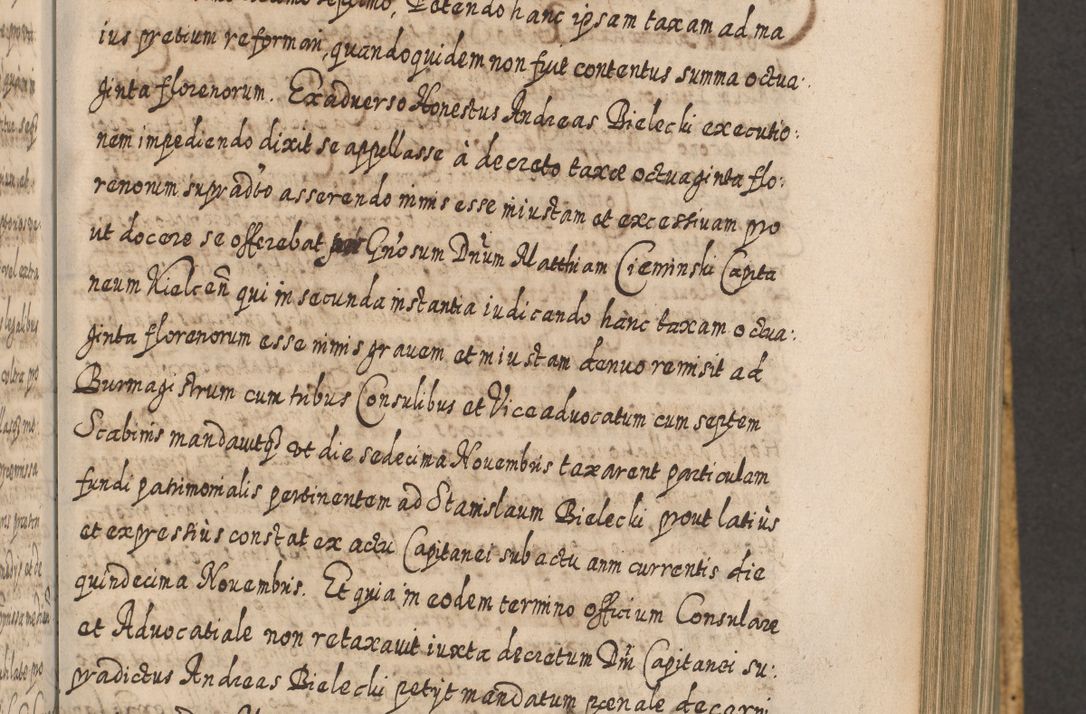 septimo, Petendo hanc ipsam taxam ad ma
ius pretium reformari, quandoquidem non fuit contentus summa octua:
ginta florenorum. Ex adverso Honestus Andreas Bielecki executio:
nem impediendo dixit se appellasse à decreto taxæ octuaginta flo:
renorum supradto asserendo nimis esse iniustam et excessiuam pro
ut docere se offerebat Gnosum Dnum Matthiam Cieminski Capita
neum Kielcen qui in secunda instantia iudicando hanc taxam octua:
ginta florenorum esse nimis grauem et iniustam denuo remisit ad
Burmagistrum cum tribus Consulibus et Viceaduocatum cum septem
Scabinis mandauitq ut die sedecima Nouembris taxarent particulam
fundi patrimonialis pertinentem ad Stanislaum Bielecki prout latiùs
et expressiùs constat ex actu Capitanei sub actu anni currentis die
quindecima Nouembris. Et quia in eodem termino officium Consulare
et Aduocatiale non retaxauit iuxta decretum Dni Capitanei su:
pradictus Andreas Bielecki petijt mandatum pœnale decerni